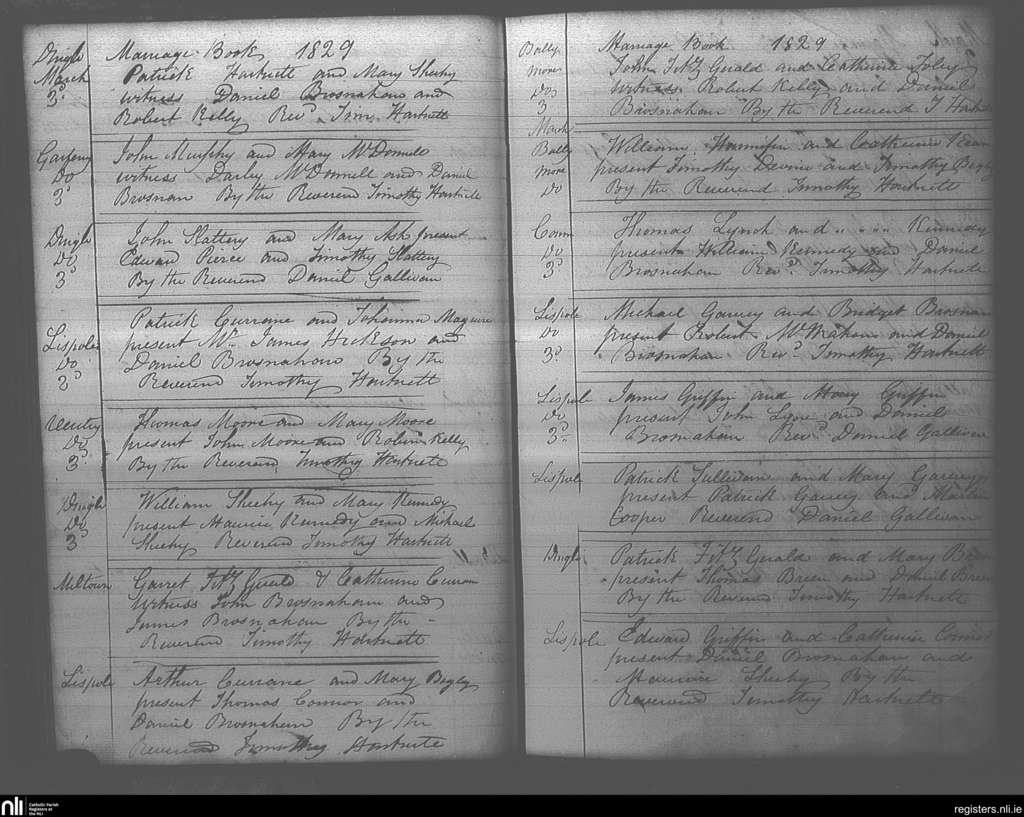 Marriage Book 1829
Dingle Patrick Hartnett and Mary Sheehy
March witness Daniel Brosnahan and
3d Robert Kelly Revd. Tim Hartnett
John Murphy and Mary McDonnell
Do witness Darley McDonnell and Daniel
3d Brosnan By the Reverend Timothy Hartnett
Dingle John Slattery and Mary Ash present
Do Edward Pierce and Timothy Slattery
3d By the Reverend Daniel Gallivan
Patrick Currane and Johanna Maguire
Lispole present Mr. James Hickson and
Do Daniel Brosnahan By the
3d Reverend Timothy Hartnett
Ventry Thomas Moore and Mary Moore
Do present John Moore and Robert Kelly
3d. By the Reverend Timothy Hartnett
Dingle William Sheehy and Mary Kennedy
Do present Maurice Kennedy and Michael
3d Sheehy Reverend Timothy Hartnett
Miltown Garret FitzGerald & Catherine Curran
witness John Brosnahan and
James Brosnahan By the
Reverend Timothy Hartnett
Lispole Arthur Currane and Mary Begley
present Thomas Connor and
Daniel Brosnahan By the
Reverend Timothy Hartnett
Marriage Book 1829
Bally John FitzGerald and Catherine Foley
more witness Robert Kelly and Daniel
Do 3 Brosnahan By the Reverend T Hart
March
Bally William Hannifin and Catherine
more present Timothy Devine and Timothy
Do By the Reverend Timothy Hartnett
Thomas Lynch and " " " Kennedy
Do present William Kennedy and Daniel
3d Brosnahan Revd. Timothy Hartnett
Lispole Michael Garvey and Bridget Brosnan
Do present Robert McMahon and Daniel
3d. Brosnahan Revd. Timothy Hartnett
Lispole James Griffin and Mary Griffin
Do present John Lyne and Daniel
3d. Brosnahan Revd Daniel Gallivan
Lispole Patrick Sullivan and Mary Garvey
present Patrick Garvey and Martin
Cooper Reverend Daniel Gallivan
Dingle Patrick FitzGerald and Mary
present Thomas Breen and Daniel Breen
By the Reverend Timothy Hartnett
Lispole Edward Griffin and Catherine Connor
present Daniel Brosnahan and
Maurice Sheehy By the
Reverend Timothy Hartnett
nli Catholic Parish
Registers at
the NLI
registers.nli.ie